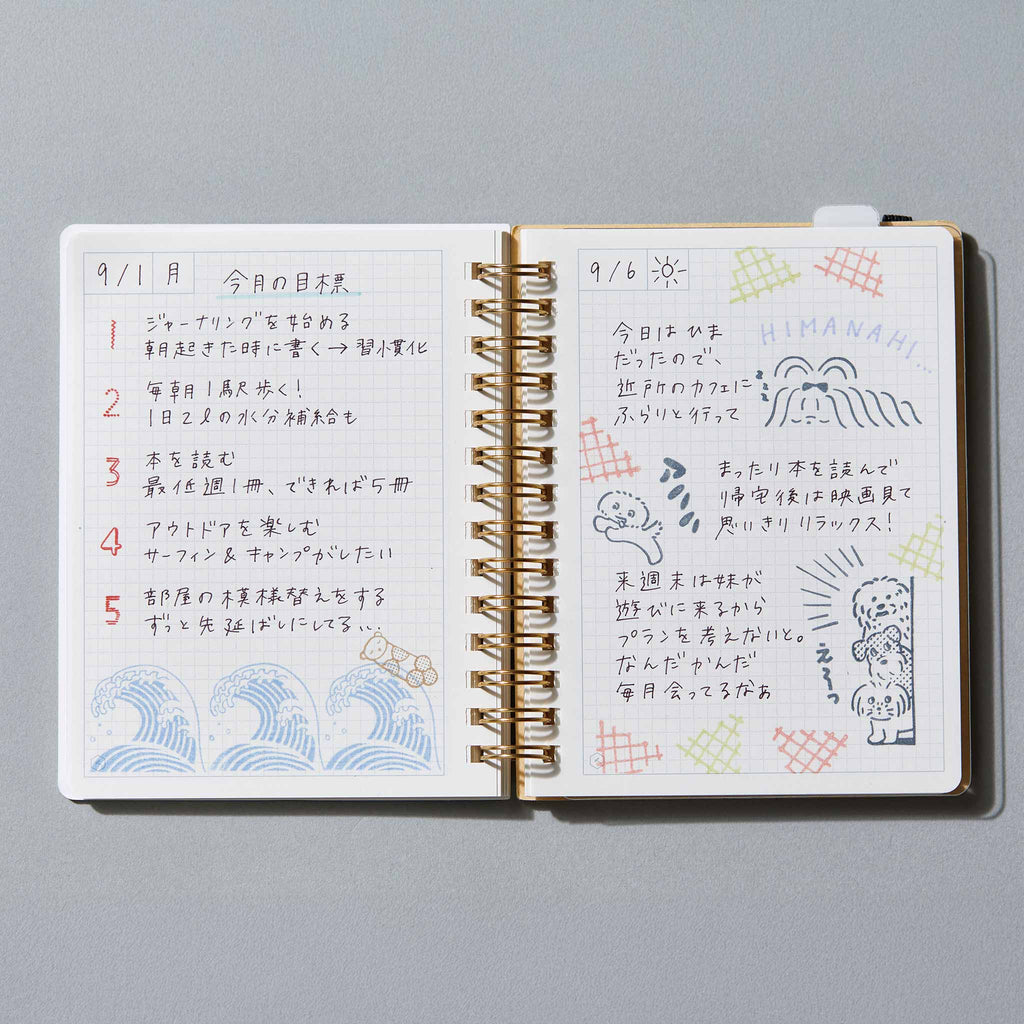 9/1 月
今月の目標
1
ジャーナリングを始める
朝起きた時に書く→習慣化
2
毎朝1駅歩く!
1日2ℓの水分補給も
3
本を読む
最低週1冊、できれば5冊
4
アウトドアを楽しむ
サーフィン&キャンプがしたい
5
部屋の模様替えをする
ずっと先延ばしにしてる...
9/6
HIMANAHI...
今日はひま
だったので、
近所のカフェに
ふらりと行って
zzz
まったり本を読んで
帰宅後は映画見て
思いきりリラックス!
来週末は妹が
遊びに来るから
プランを考えないと。
なんだかんだ
毎月会ってるなぁ